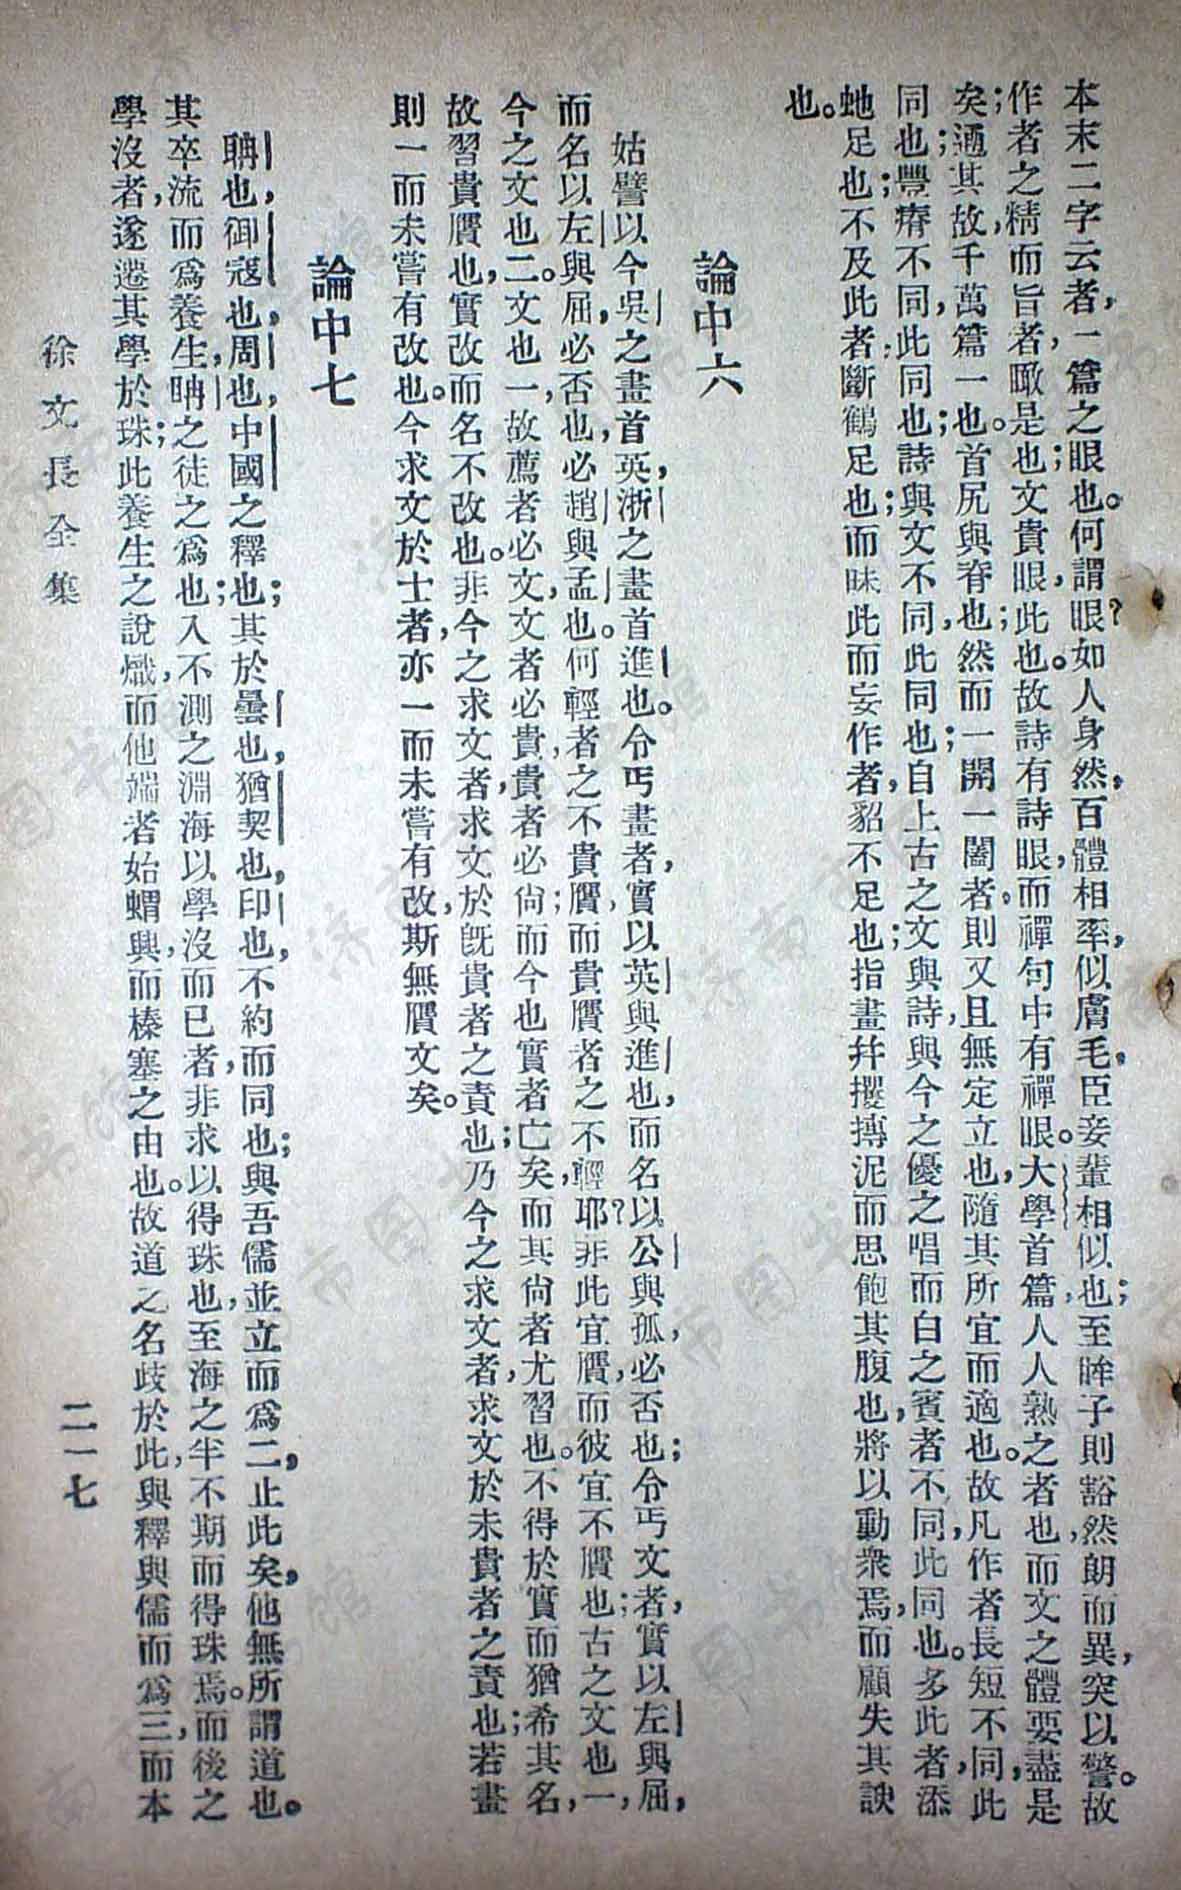 本末二字云者，一篇之眼也。何謂眼？如人身然，百體相率，似膚毛，臣妾輩相似也；至眸子則豁然朗而異，突以警。故
作者之精而旨者，瞰是也；文貴眼，此也。故詩有詩眼，而禪句中有禪眼。大學首篇，人人熟之者也，而文之體要盡是
矣；通其故，千萬篇一也。首尻與脊也；然而一開一闔者，則又且無定立也，隨其所宜而適也。故凡作者長短不同，此
同也；豐瘠不同，此同也；詩與文不同，此同也；自上古之文與詩，與今之優之唱而白之賓者不同，此同也。多此者，添
虵足也；不及此者，斷鶴足也；而昧此而妄作者，貂不足也；指畫幷攖摶泥而思飽其腹也，將以動衆焉，而顧失其諛
也。
論中六
姑譬以今吳之畫首英，浙之畫首進也。令丐畫者，實以英與進也，而名以公與孤，必否也；令丐文者，實以左與屈，
而名以左與屈，必否也，必趙與孟也。何輕者之不貴贋，而貴贋者之不輕耶？非此宜贋，而彼宜不贋也；古之文也一，
今之文也二。文也一，故薦者必文，文者必貴，貴者必尙；而今也實者亡矣，而其尙者尤習也。不得於實而猶希其名，
故習貴贋也，實改而名不改也。非今之求文者，求文於旣貴者之責也；乃今之求文者，求文於未貴者之責也；若畫
則一而未嘗有改也。今求文於士者，亦一而未嘗有改，斯無贋文矣。
論中七
聃也，御寇也，周也，中國之釋也；其於曇也，猶契也，印也，不約而同也；與吾儒並立而爲二，止此矣，他無所謂道也。
其卒流而爲養生，聃之徒之爲也；入不測之淵海以學沒而已者，非求以得珠也，至海之半，不期而得珠焉。而後之
學沒者，遂遷其學於珠；此養生之說熾，而他端者始蝟興，而榛塞之由也。故道之名歧於此，與釋與儒而爲三，而本
徐文長全集
二一七